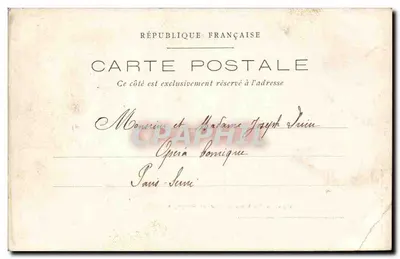 RÉPUBLIQUE FRANÇAISE
CARTE POSTALE
Ce côté est exclusivement réservé à l'adresse
et Madame Joseph
Opéra Comique
Paris